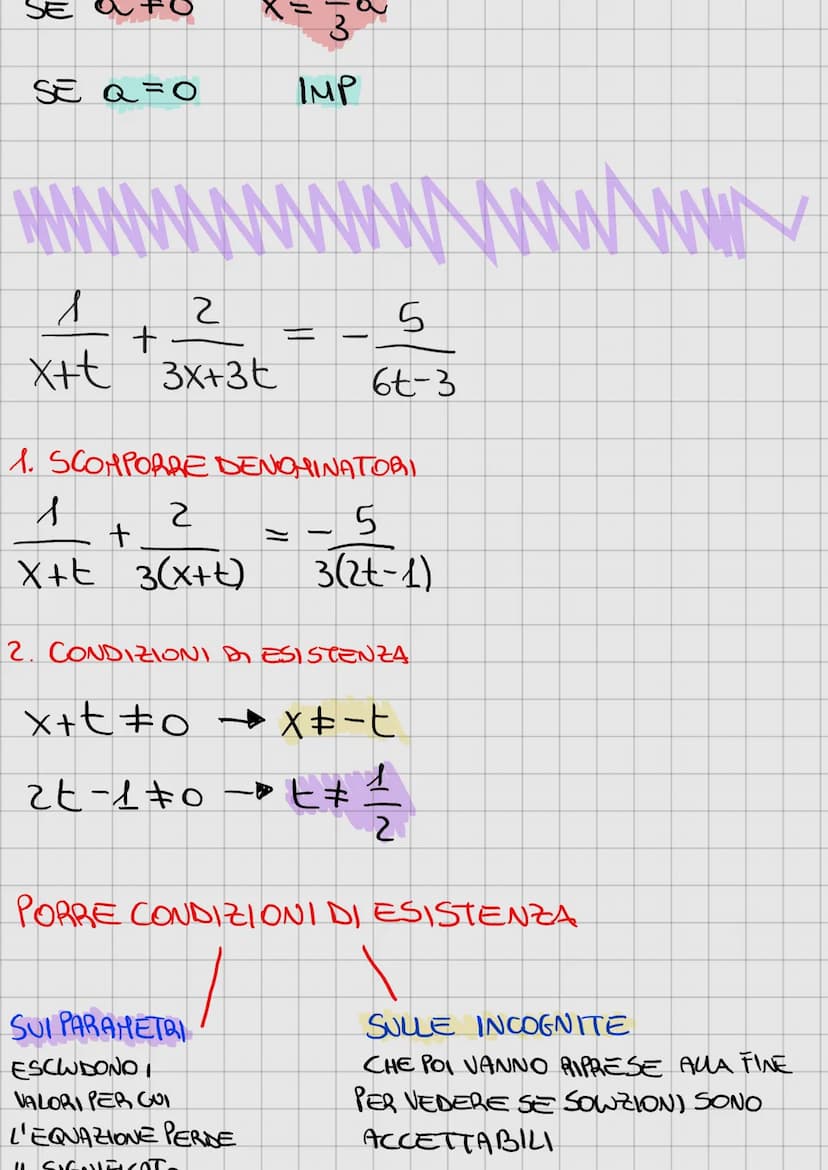 SE a≠0 x = — a
3
SE a=0 IMP
1/(x+t) + 2/(3x+3t) = - 5/(6t-3)
1. SCOMPORRE DENOMINATORI
1/(x+t) + 2/(3(x+t)) = - 5/(3(2t-1))
2. CONDIZIONI DI ESISTENZA
x+t≠0 → x≠-t
2t-1≠0 → t≠ 1/2
PORRE CONDIZIONI DI ESISTENZA
SUI PARAMETRI
ESCLUDONO I
VALORI PER CUI
L'EQUAZIONE PERDE
IL SIGNIFICATO
SULLE INCOGNITE
CHE POI VANNO RIPRESE ALLA FINE
PER VEDERE SE SOLUZIONI SONO
ACCETTABILI